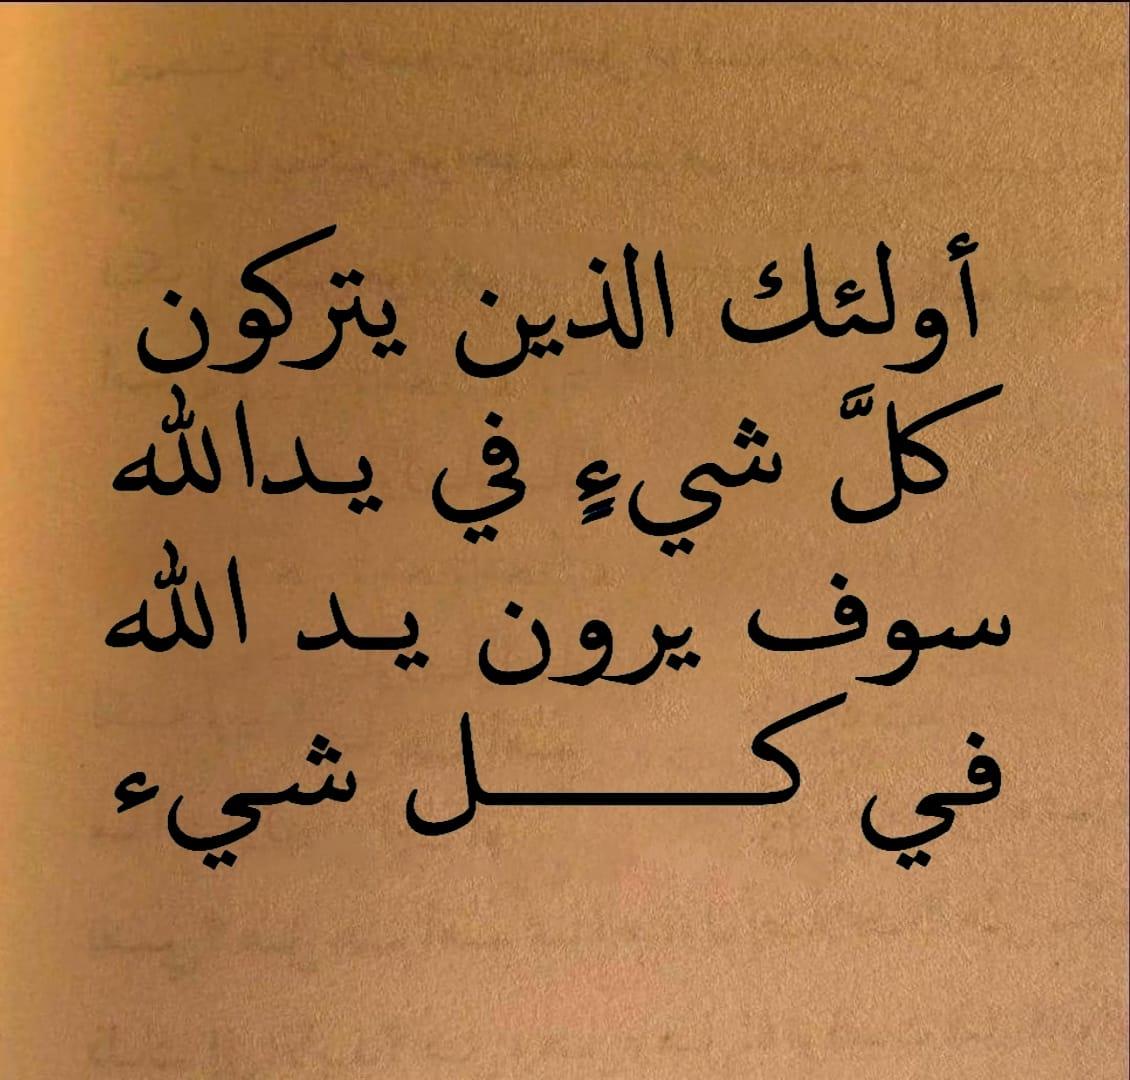 أولئك الذين يتركون
كلَّ شيءٍ في يدالله
سوف يرون يد الله
في كل شيء